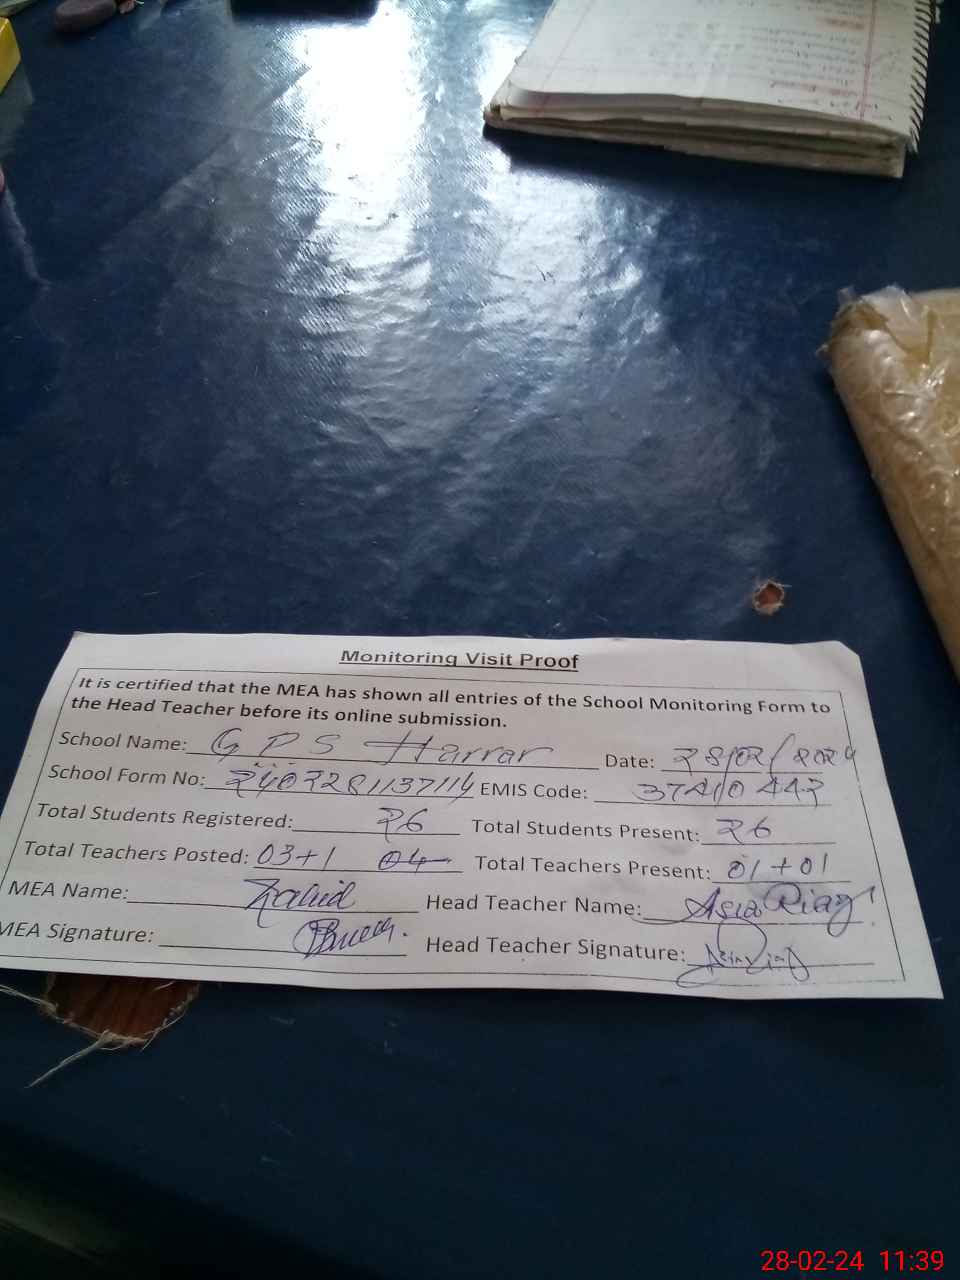 Monitoring Visit Proof
It is certified that the MEA has shown all entries of the School Monitoring Form to
the Head Teacher before its online submission.
School Name: GPS Harrar Date: 28/02/2024
School Form No: 2407281137114 EMIS Code: 37410442
Total Students Registered: 26 Total Students Present: 26
Total Teachers Posted: 03+1 04 Total Teachers Present: 01+01
MEA Name: Zahid Head Teacher Name: Asia Riaz
MEA Signature: Head Teacher Signature:
28-02-24 11:39